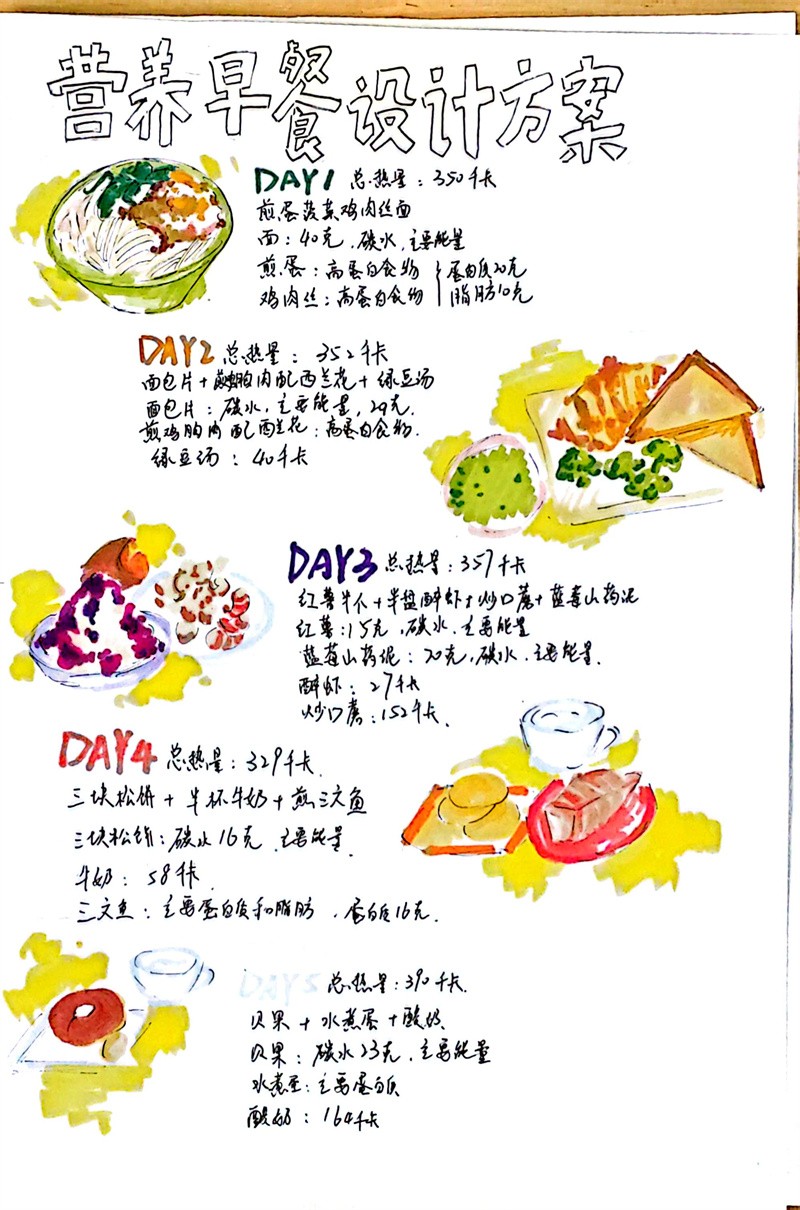 营养早餐设计方案
DAY1 总热量：350千卡
煎蛋菠菜鸡肉丝面
面：40克，碳水，主要能量
煎蛋：高蛋白食物 蛋白质20克
鸡肉丝：高蛋白食物 脂肪10克
DAY2 总热量：352千卡
面包片+煎鸡胸肉配西兰花+绿豆汤
面包片：碳水，主要能量，29克.
煎鸡胸肉配西兰花：高蛋白食物.
绿豆汤：40千卡
DAY3 总热量：357千卡
红薯半个+半盘醉虾+炒口蘑+蓝莓山药泥
红薯：15克，碳水，主要能量
蓝莓山药泥：20克，碳水，主要能量.
醉虾：27千卡
炒口蘑：152千卡.
DAY4 总热量：329千卡.
三块松饼+半杯牛奶+煎三文鱼
三块松饼：碳水16克，主要能量.
牛奶：58千卡.
三文鱼：主要蛋白质和脂肪，蛋白质16克.
DAY5 总热量：390千卡.
贝果+水煮蛋+酸奶
贝果：碳水23克，主要能量
水煮蛋：主要蛋白质
酸奶：164千卡